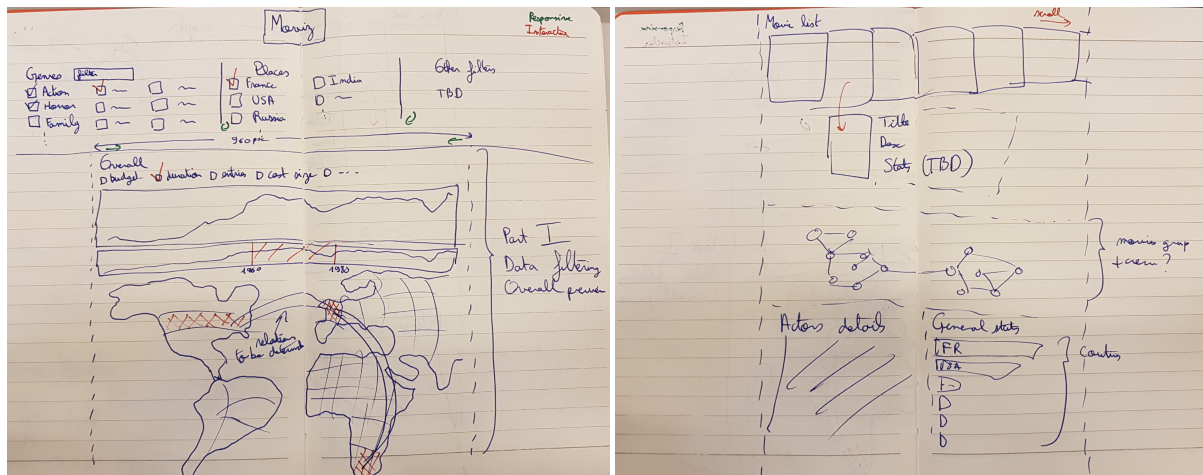 Moviz
Responsive
Interactive
Genres filter
Action
Horror
Family
Places
France
USA
Russia
India
Other filters
TBD
960 px
Overall
budget duration entries cast size ...
1960 1980
relations
to be determined
Part I
Data filtering
Overall preview
Movie list
scroll
Title
Desc
Stats (TBD)
movies graph
+ crew ?
Actors details
General stats
FR
USA